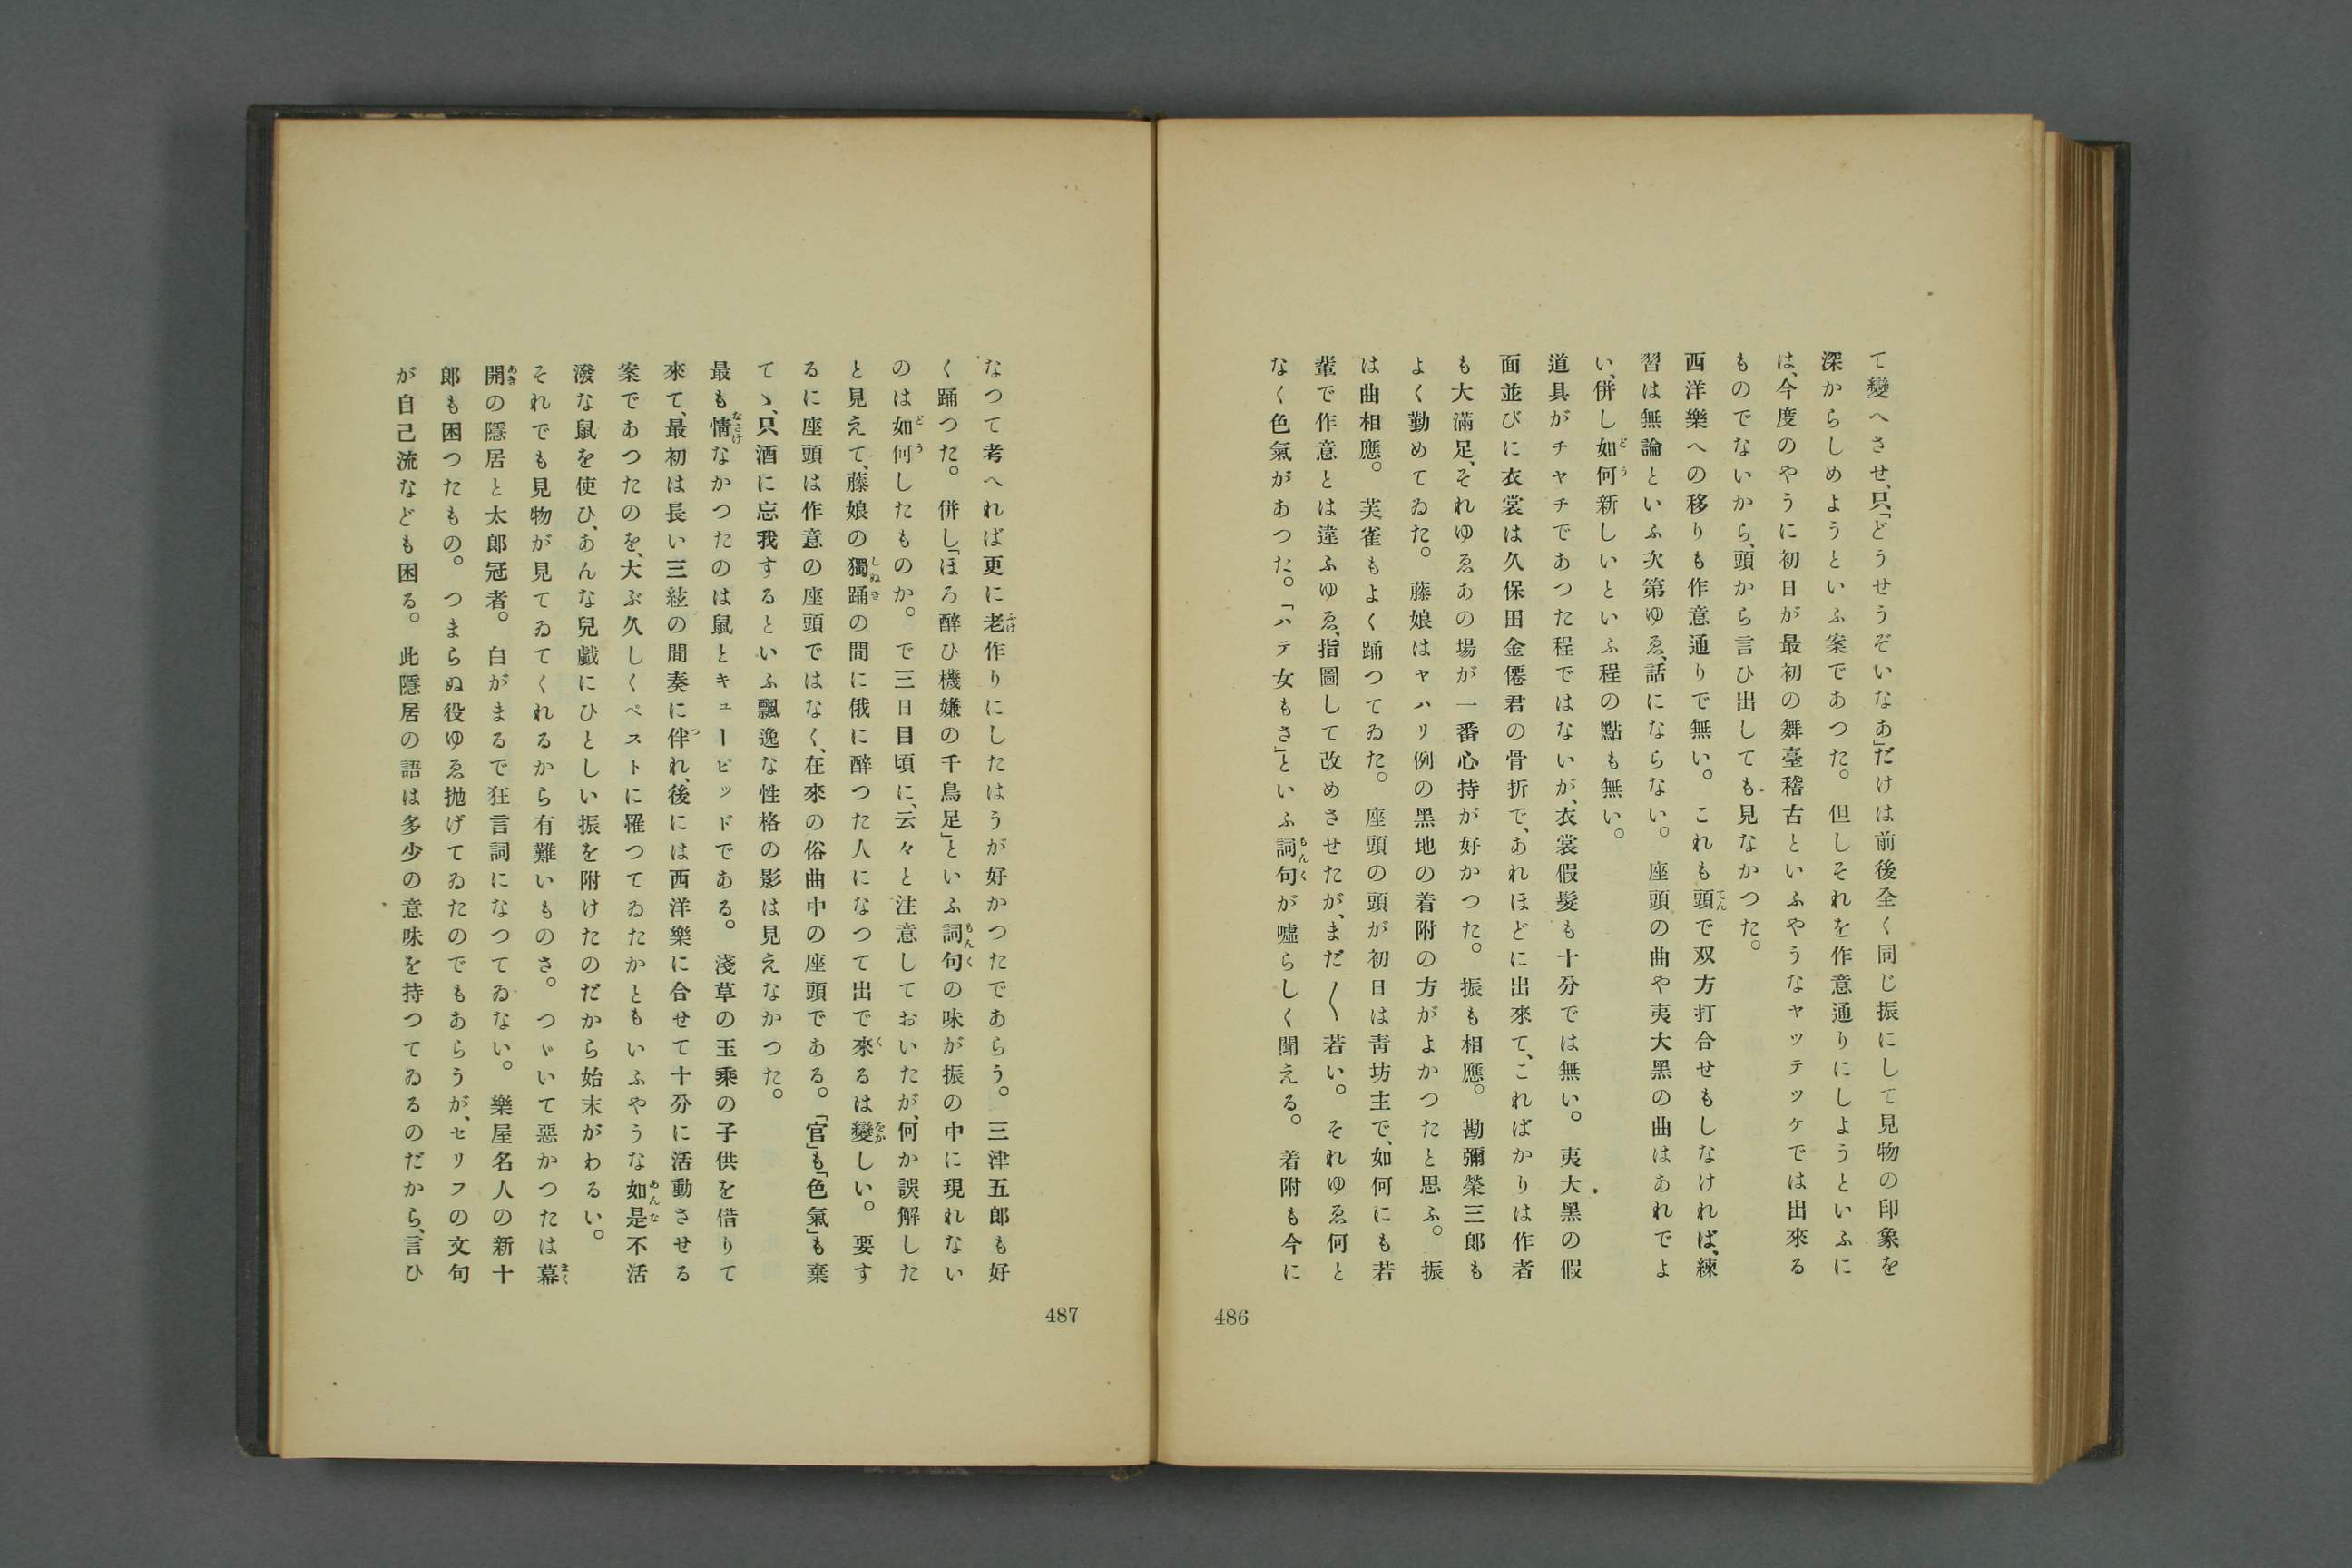 て變へさせ、只「どうせうぞいなあ」だけは前後全く同じ振にして見物の印象を
深からしめようといふ案であつた。但しそれを作意通りにしようといふに
は、今度のやうに初日が最初の舞臺稽古といふやうなヤッテツケでは出來る
ものでないから、頭から言ひ出しても見なかつた。
西洋樂への移りも作意通りで無い。これも頭で双方打合せもしなければ、練
習は無論といふ次第ゆゑ、話にならない。座頭の曲や夷大黑の曲はあれでよ
い、併し如何新しいといふ程の點も無い。
道具がチャチであつた程ではないが、衣裳假髮も十分では無い。夷大黑の假
面並びに衣裳は久保田金僊君の骨折で、あれほどに出來て、こればかりは作者
も大滿足、それゆゑあの場が一番心持が好かつた。振も相應。勘彌榮三郎も
よく勤めてゐた。藤娘はヤハリ例の黑地の着附の方がよかつたと思ふ。振
は曲相應。芙雀もよく踊つてゐた。座頭の頭が初日は靑坊主で、如何にも若
輩で作意とは違ふゆゑ、指圖して改めさせたが、まだ〱若い。それゆゑ何と
なく色氣があつた。「ハテ女もさ」といふ詞句が噓らしく聞える。着附も今に
486
なつて考へれば更に老作りにしたはうが好かつたであらう。三津五郎も好
く踊つた。併し「ほろ醉ひ機嫌の千鳥足」といふ詞句の味が振の中に現れない
のは如何したものか。で三日目頃に、云々と注意しておいたが、何か誤解した
と見えて、藤娘の獨踊の間に俄に醉つた人になつて出で來るは變しい。要す
るに座頭は作意の座頭ではなく、在來の俗曲中の座頭である。「官」も「色氣」も棄
てゝ、只酒に忘我するといふ飄逸な性格の影は見えなかつた。
最も情なかつたのは鼠とキューピッドである。淺草の玉乘の子供を借りて
來て、最初は長い三絃の間奏に伴れ、後には西洋樂に合せて十分に活動させる
案であつたのを、大ぶ久しくペストに罹つてゐたかともいふやうな如是不活
潑な鼠を使ひ、あんな兒戲にひとしい振を附けたのだから始末がわるい。
それでも見物が見てゐてくれるから有難いものさ。つゞいて惡かつたは幕
開の隱居と太郎冠者。白がまるで狂言詞になつてゐない。樂屋名人の新十
郎も困つたもの。つまらぬ役ゆゑ抛げてゐたのでもあらうが、セリフの文句
が自己流なども困る。此隱居の語は多少の意味を持つてゐるのだから、言ひ
487